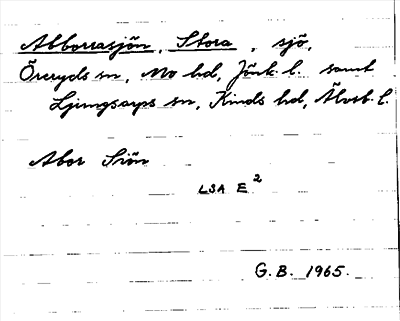 Abborrasjön, Stora, sjö,
Öreryds sn, Mo hd, Jönk. l. samt
Ljungsarps sn, Kinds hd, Älvsb. l.
Abor Siön
LSA E²
G.B. 1965.